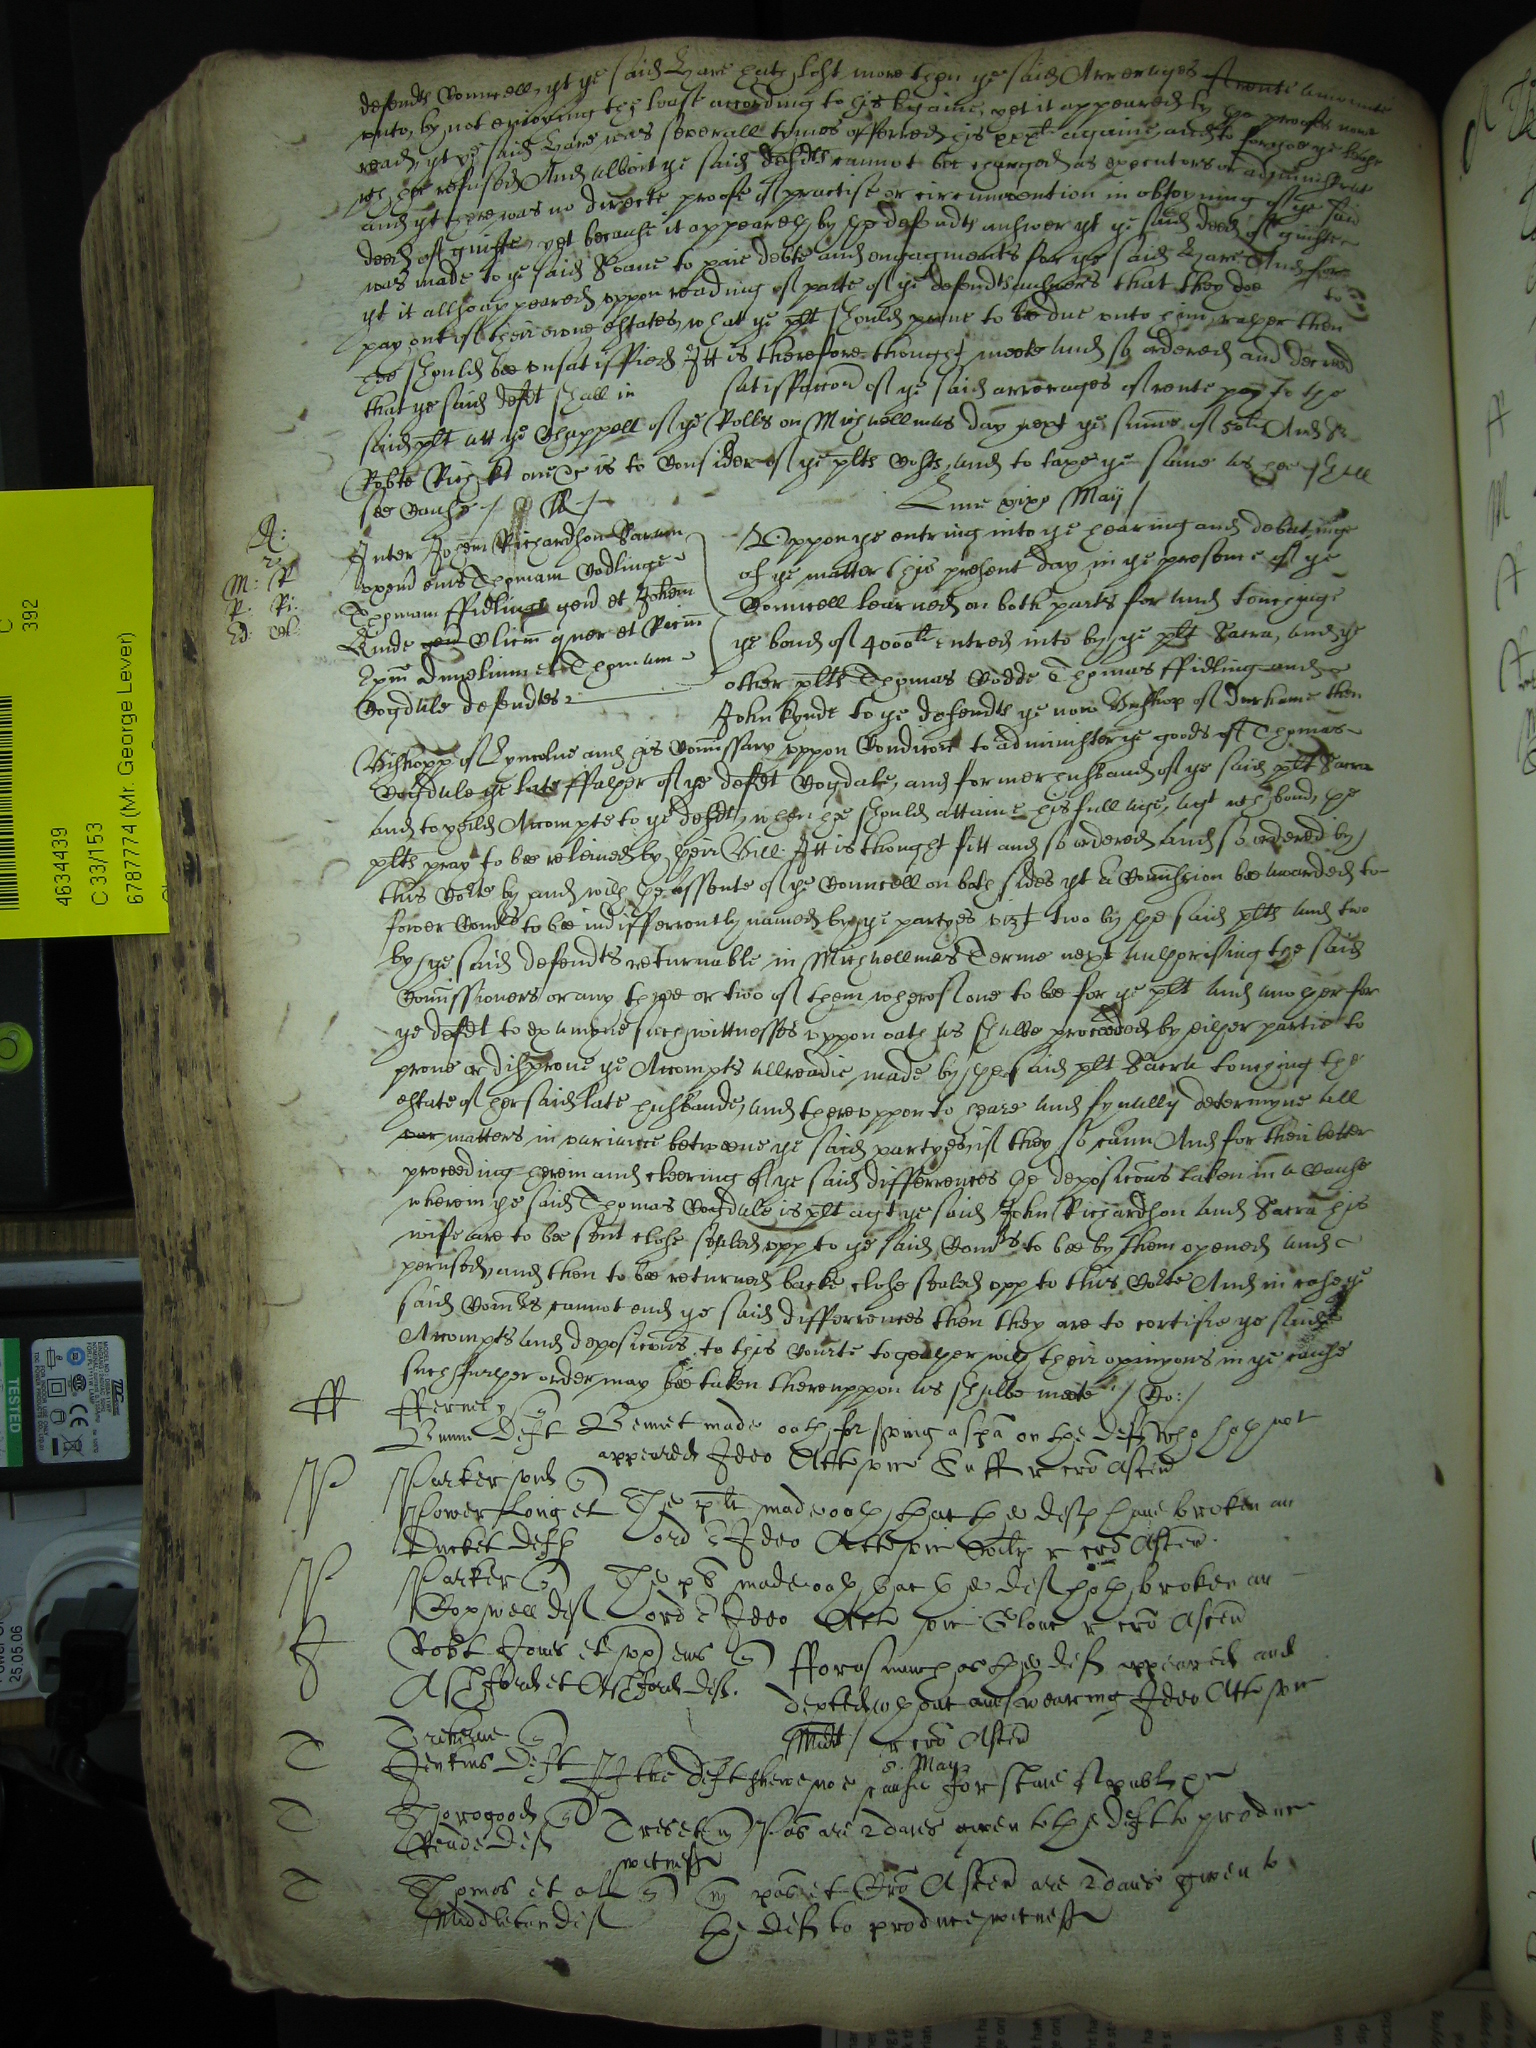 defendts Councell, yt ye said Hare hath lost more then ye said Arrerages of rente amounte
unto, by not enioying the lease according to his bargaine, yet it appeared by the proofes nowe
read, yt ye said Hare was severall tymes offerred his againe, and to forgoe ye lease
wch hee refused And albeit ye said defdts cannot bee charged as executors or administrat
and yt there was no directe proofe of practise or circumvention in obteyning of ye said
deed of guifte, yet because it appeareth by the defendts answer yt ye said deed of guifte
was made to ye said Soane to paie debts and engagments for ye said Hare And for
yt it allso appeared uppon reading of parte of ye defendts answers that they doe
pay out of their owne estates, what ye plt should prove to be due unto him, rather then
hee should bee unsatisffied Itt is therefore thought meete and so ordered and decreed
that ye said defdt shall in satisffaccon of ye said arrerages of rente pay to the
said plt att ye Chappell of ye Rolls on Michaellmas day next ye sume of 50li And Sr
Robte Rich kt one &c is to Consider of ye plts Costs, and to taxe ye same as hee shall
see Cause /
Lune xixo May /
Inter Johem Richardson Saram
uxorem eius Thomam Codlinge
Thomam ffidlinge gen et Johem
Kinde quer et
Thomam
Cogdale defendtes
Uppon ye entring into ye hearing and debatinge
of ye matter this present day in ye presence of ye
Councell learned on both parts for and touchinge
ye bond of 4000li entred into by ye plt Sacra, and ye
other plts Thomas Codde Thomas ffidling and
John Kynde to ye defendts ye now Bushop of Durhame then
Bishopp of Lyncolne and his Comissary uppon Condicon to administer ye goods of Thomas
Cogdale ye late ffather of ye defdt Cogdale, and former husband of ye said plt Sacra
and to yeild Accompte to ye defdt, when he should attaine his full age, agt wch bond, the
plts pray to bee releived by their Bill. Itt is thought fitt and so ordered and so ordered by
this Corte by and with the assente of ye Councell on both sides yt a Comission bee awarded to
fower Comrs to bee indifferrently named by ye partyes vizt two by the said plts and two
by ye said defendts returnable in Michaellmas Terme next authorising the said
Comissioners or any three or two of them whereof one to bee for ye plt and another for
ye defdt to examyne such wittnesses uppon oath as shalbe produced by either partie to
prove or disprove ye Accompts allreadie made by the said plt Sacra touching the
estate of her said late husbande, and thereuppon to heare and fynally determyne all
matters in variance betweene ye said partyes, if they so cann And for their better
proceeding herein and cleering of ye said differrences the deposicons taken in a Cause
wherein ye said Thomas Cogdale is plt agt ye said John Richardson and Sacra his
wife are to bee sent close sealed upp to ye said Comrs to bee by them opened and
perused, and then to bee returned backe close sealed upp to this Corte And in case ye
said Comrs cannot end ye said differrences then they are to certifie ye said
Accompts and deposicons to this Courte together with their opinyons in ye cause
such further order may bee taken thereuppon as shalbe meete / Co: /
fferneley
Deft Bennet made oath for serving a spa on the deft who hath not
appeared Ideo Att vic Suff r cro Ascen
Parker
Powerlong et The plt made oath that the defts have broken an
Ducket defts ord Ideo Att vic r cro Ascen
Parker The plt made oath that the deft hath broken an
Boxwell deft ord Ideo Att vic Glouc r cro Ascen
Robt Jones et ux eius fforasmuch as the defts appeared and
Ashford et Ashford defts. depted without answearing Ideo Att vic
Midd / r cro Ascen
Jenkins Deft If the deft shewe noe cause 8. May for staie of publ
Thorogood Tres et are 2 daies given to the deft to produce
Reade deft witnesse
Thomas et all et Cro Ascen are 2 daies given to
Middleton deft the deft to produce witnesse
4634439
C 33/153
6787774 (Mr. George Lever)
392
TESTED
25.05.06